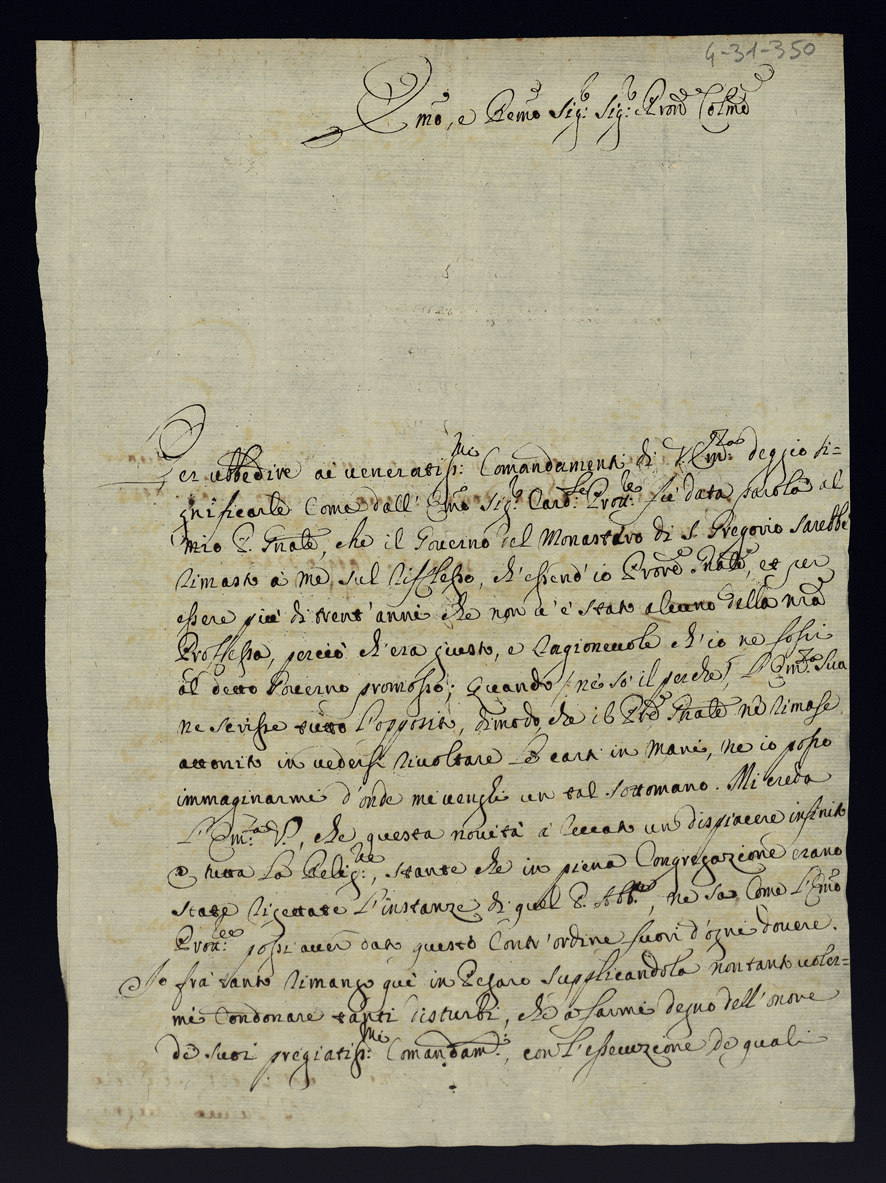 4-31-350
Emo, e Remo Sig.r Sig.r Prone Colmo
Per ubbedire ai veneratiss.mi Comandamenti di V. Em.za deggio si=
gnificarle come dall' Emo Sig.r Card.le Prott.re fù data parola al
mio P. Gnale, che il Governo del Monastero di S. Gregorio sarebbe
rimasto à me sul riflesso, ch'essend'io Prore Gnale, et per
essere più di trent'anni che non v'è stato alcuno della nra
Professa, perciò ch'era giusto, e ragionevole ch'io ne fossi
al detto Governo promosso; Quando /: nè sò il perche :/ L'Em.za Sua
ne scrisse tutto l'opposito, dimodo, che il Pre Gnale nè rimase
attonito in vedersi rivoltare le carte in mani, ne io posso
immaginarmi d'onde mi venghi un tal sottomano. Mi creda
L'Em.za V., che questa novità à reccato un dispiacere infinito
à tutta la Relig.ne, stante che in piena Congregazione erano
state rigettate l'instanze di quel P. Abb.te, ne sa come l'Emo
Prott.re possi aver dato questo contr'ordine fuori d'ogni dovere.
Io frà tanto rimango quì in Pesaro supplicandola non tanto voler=
mi condonare tanti disturbi, che à farmi degno dell'onore
de suoi pregiatiss.mi Comandam.ti, con l'essecuzione de quali